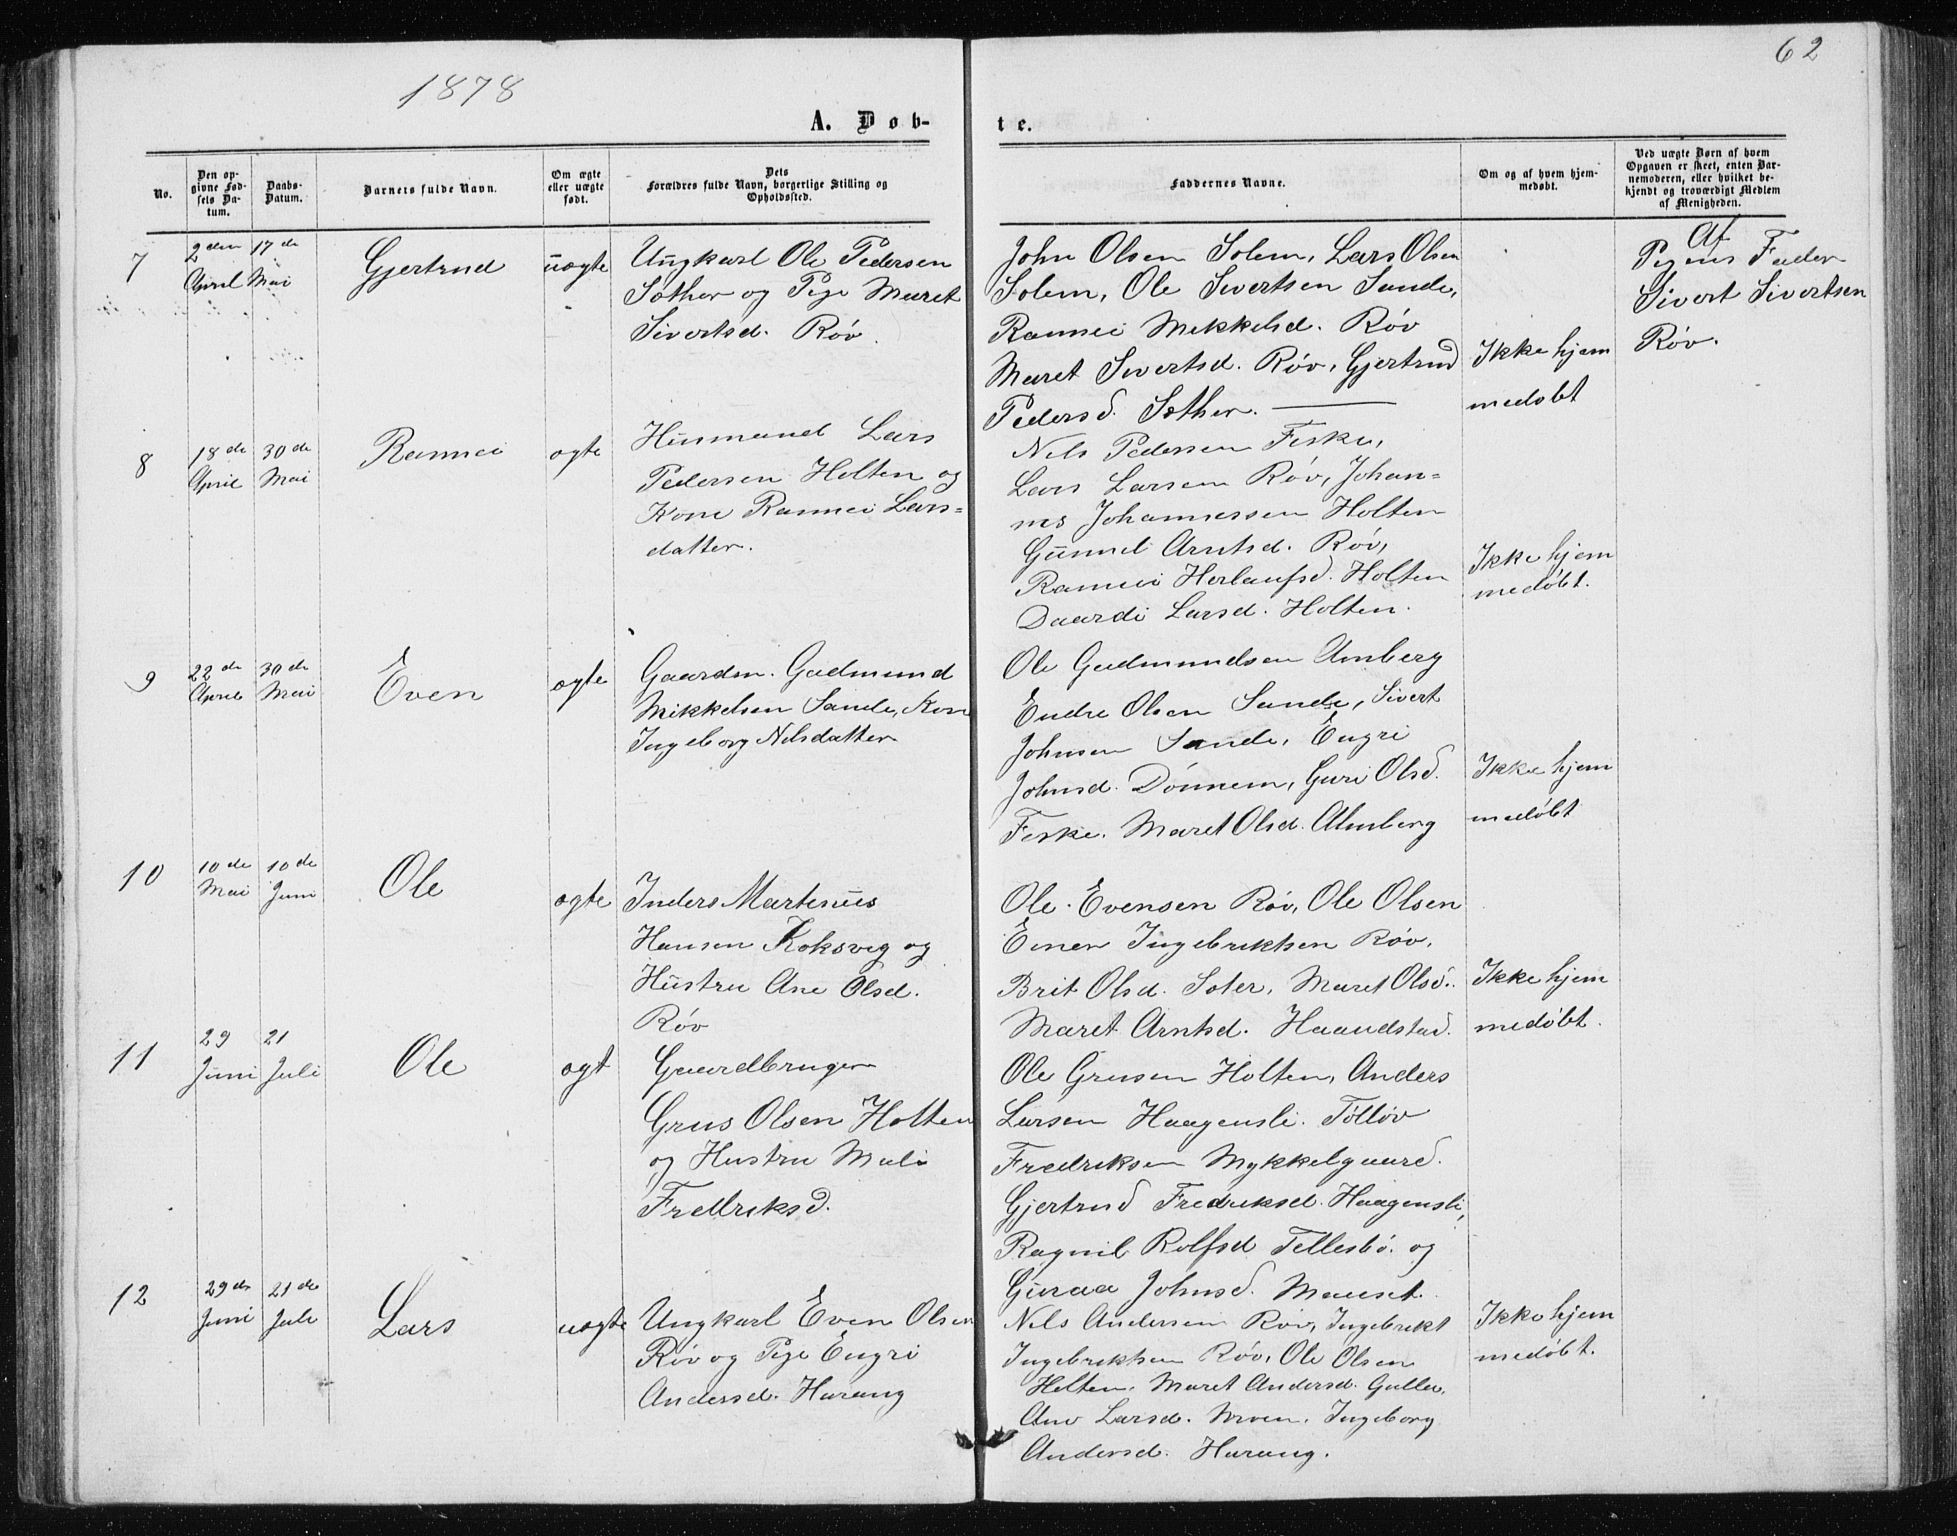 62
1878
A. Døb-
te.
No.
Den op-
givne Fød-
sels Da-
tum.
Daabs-
Datum.
Barnets fulde Navn.
Om ægte
eller uægte
født.
Dets
Forældres fulde Navn, borgerlige Stilling og
Opholdssted.
Faddernes Navne.
Om og af hvem hjem-
medøbt.
Ved uægte Børn af hvem
Opgaven er skeet, enten Bar-
nemoderen, eller hvilket be-
kjendt og troværdigt Medlem
af Menigheden.
7
2den
April
17de
Mai
Gjertrud
uægte
Ungkarl Ole Pedersen
Sæther og Pige Maret
Sivertsd. Røv.
John Olsen Solem, Lars Olsen
Solem, Ole Sivertsen Sande,
Rannei Mikkelsd. Røv
Maret Sivertsd. Røv, Gjertrud
Pedersd. Sæther.
Ikke hjem
medøbt
Af
Pigens Fader
Sivert Sivertsen
Røv.
8
18de
April
30de
Mai
Rannei
ægte
Husmand Lars
Pedersen Holten og
Kone Rannei Lars=
datter.
Nils Pedersen Feske,
Lars Larsen Røv, Johan=
nes Johannessen Holten
Gunnil Arntsd. Røv,
Rannei Herlaufsd. Holten
Daardi Larsd. Holten.
Ikke hjem
medøbt.
9
22de
April
30de
Mai
Even
ægte
Gaardm. Gudmund
Mikkelsen Sande, Kone
Ingeborg Nilsdatter
Ole Gudmundsen Amberg
Endre Olsen Sande, Sivert
Johnsen Sande, Engri
Johnsd. Dønnem, Guri Olsd.
Feske. Maret Olsd. Almberg
Ikke hjem
medøbt
10
10de
Mai
10de
Juni
Ole
ægte
Inders Martinus
Hansen Koksvig og
Hustru Ane Olsd.
Røv
Ole Evensen Røv, Ole Olsen
Einer Ingebriktsen Røv,
Brit Olsd. Soter, Maret Olsd.
Maret Arntsd. Haandstad.
Ikke hjem
medøbt.
11
29
Juni
21
Juli
Ole
ægt
Gaardbruger
Grus Olsen Holten
og Hustru Mali
Fredriksd.
Ole Grusen Holten, Anders
Larsen Haagensli. Tølløv
Fredriksen Mykkelgaard.
Gjertrud Fredriksd. Haagensli,
Ragnil Rolfsd Tellesbø. og
Guraa Johnsd. Mauset.
12
29de
Juni
21de
Juli
Lars
uægte
Ungkarl Even Olsen
Røv og Pige Engri
Andersd. Harang
Nils Andersen Røv, Ingebrikt
Ingebriktsen Røv, Ole Olsen
Holten. Maret Andersd. Gulla,
Ane Larsd. Moen. Ingeborg
Andersd. Harang.
Ikke hjem
medøbt.